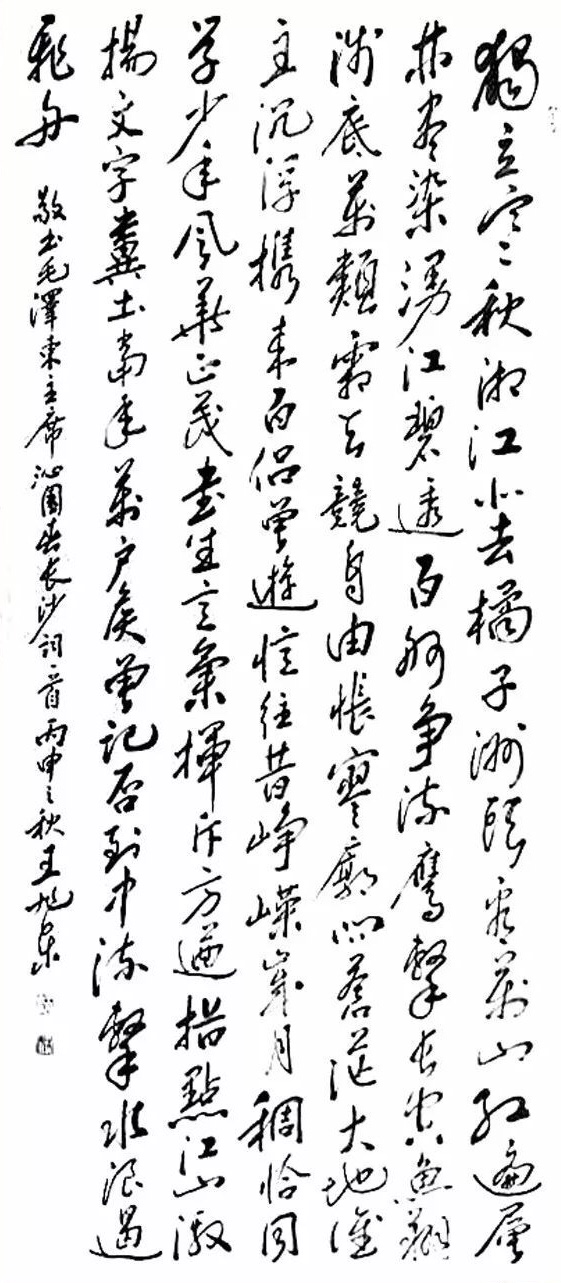 獨立寒秋湘江北去橘子洲頭看萬山紅遍層
林盡染漫江碧透百舸争流鷹擊長空魚翔
淺底萬類霜天競自由悵寥廓問蒼茫大地誰
主沉浮携来百侣曾遊憶往昔峥嵘歲月稠恰同
学少年風華正茂書生意氣揮斥方遒指點江山激
揚文字糞土當年萬户侯曾記否到中流擊水浪遏
飛舟
敬书毛澤東主席沁園春長沙詞一首丙申之秋王旭